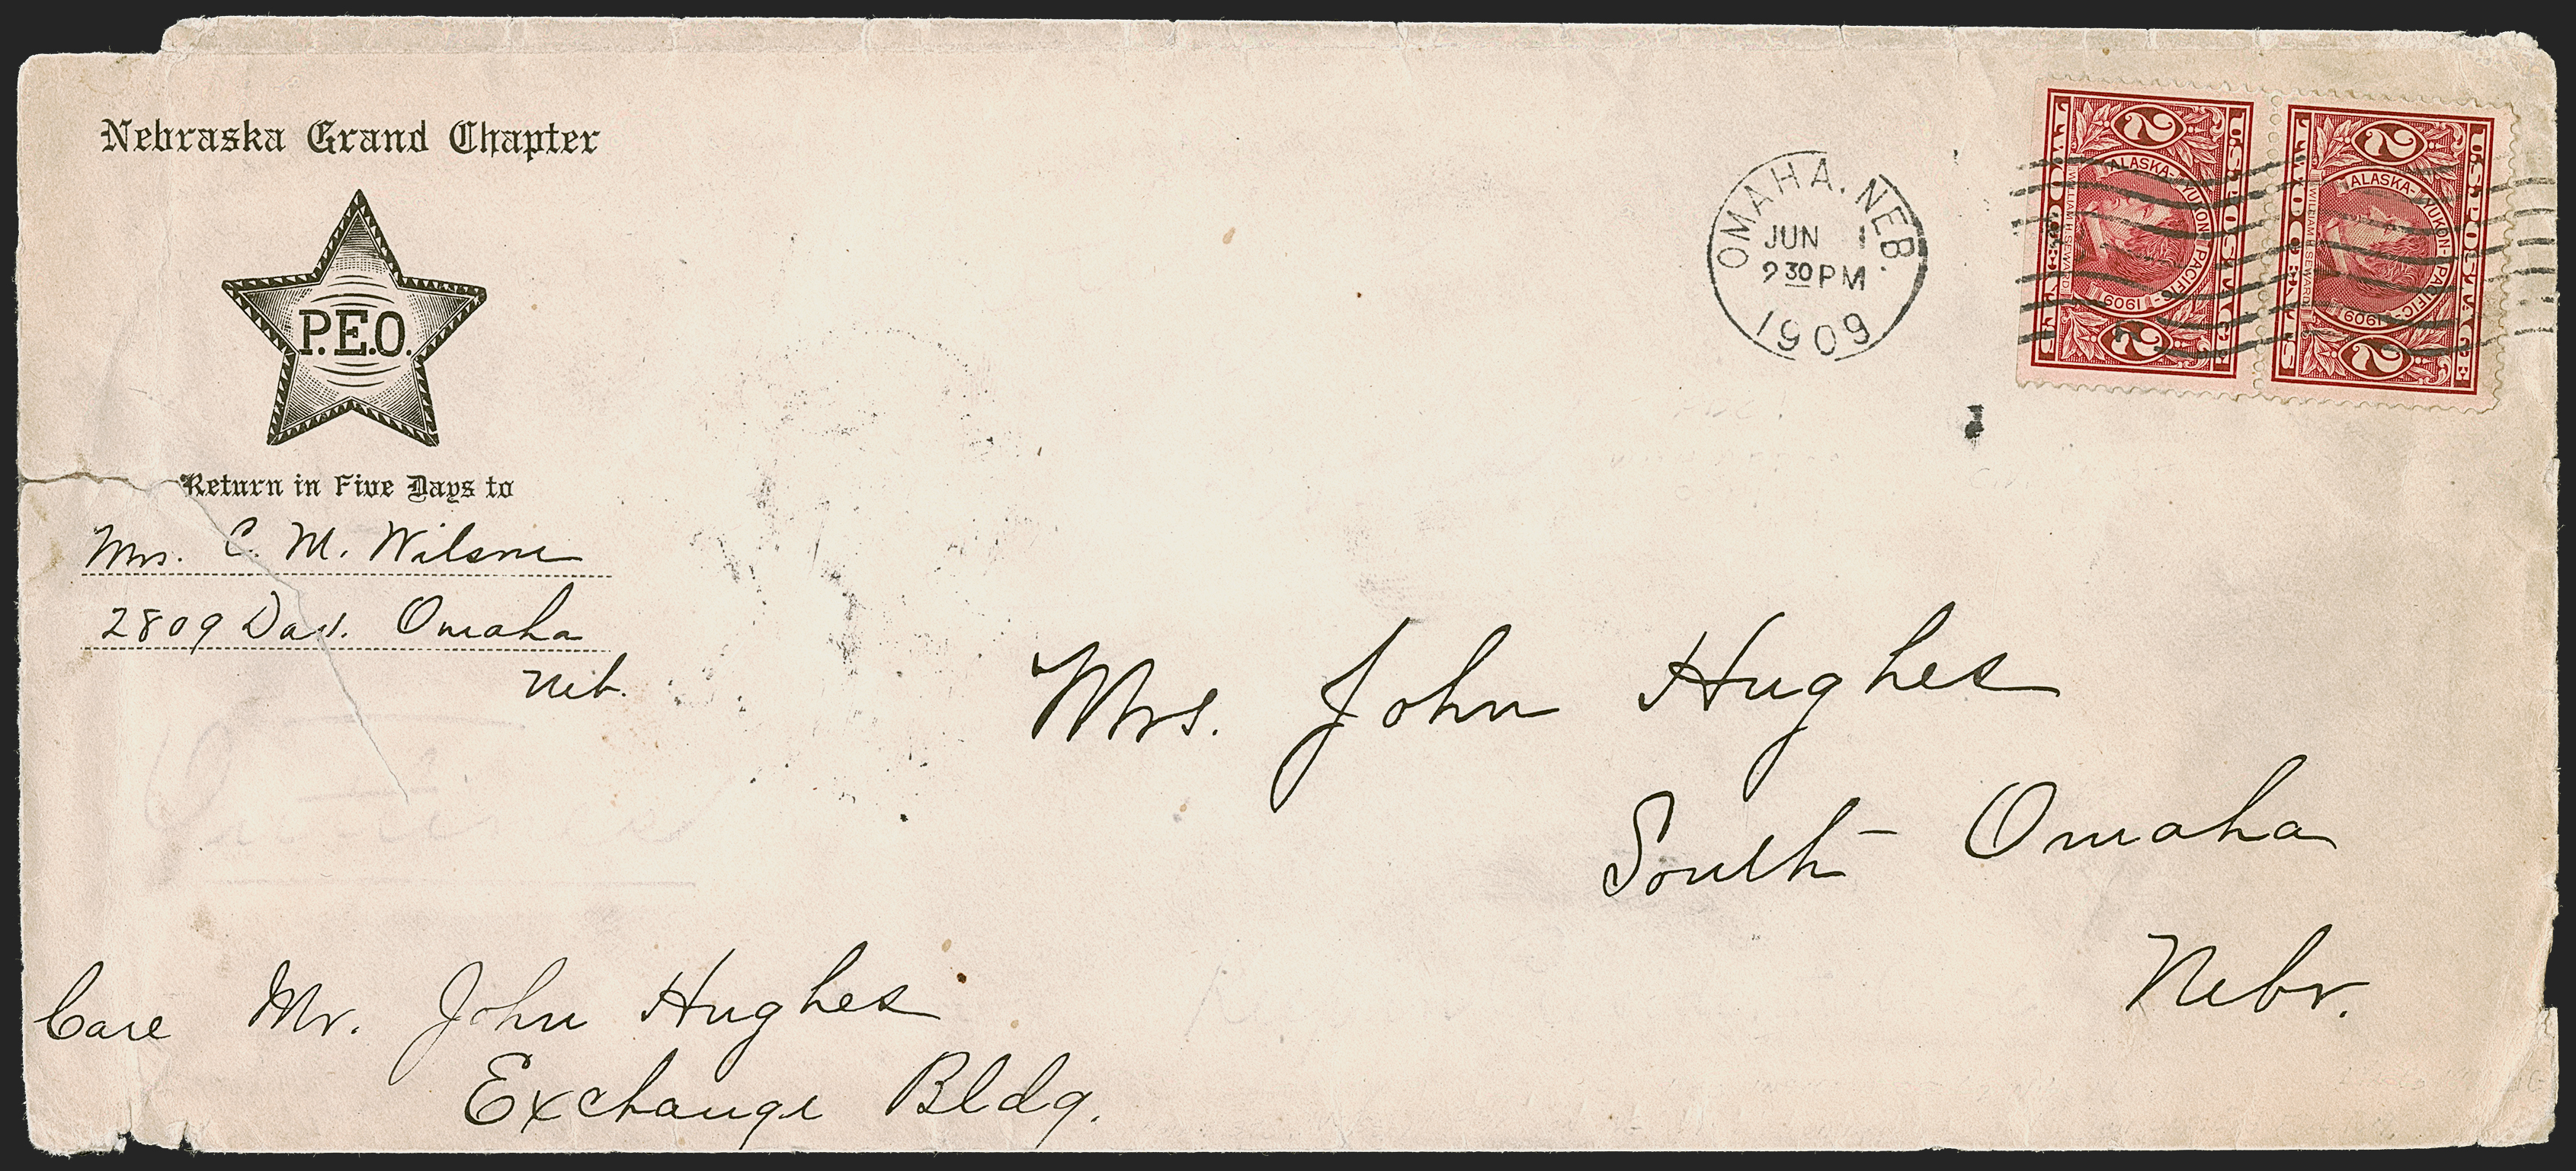 Nebraska Grand Chapter
P.E.O.
Return in Five Days to
Mrs. C. M. Wilson
2809 Dav. Omaha
Neb.
OMAHA, NEB.
JUN 1
9 30 PM
1909
U.S. POSTAGE
2 2
ALASKA-YUKON-PACIFIC-1909
WILLIAM H. SEWARD
TWO CENTS
U.S. POSTAGE
2 2
ALASKA-YUKON-PACIFIC-1909
WILLIAM H. SEWARD
TWO CENTS
Mrs. John Hughes
South Omaha
Nebr.
Care Mr. John Hughes
Exchange Bldg.